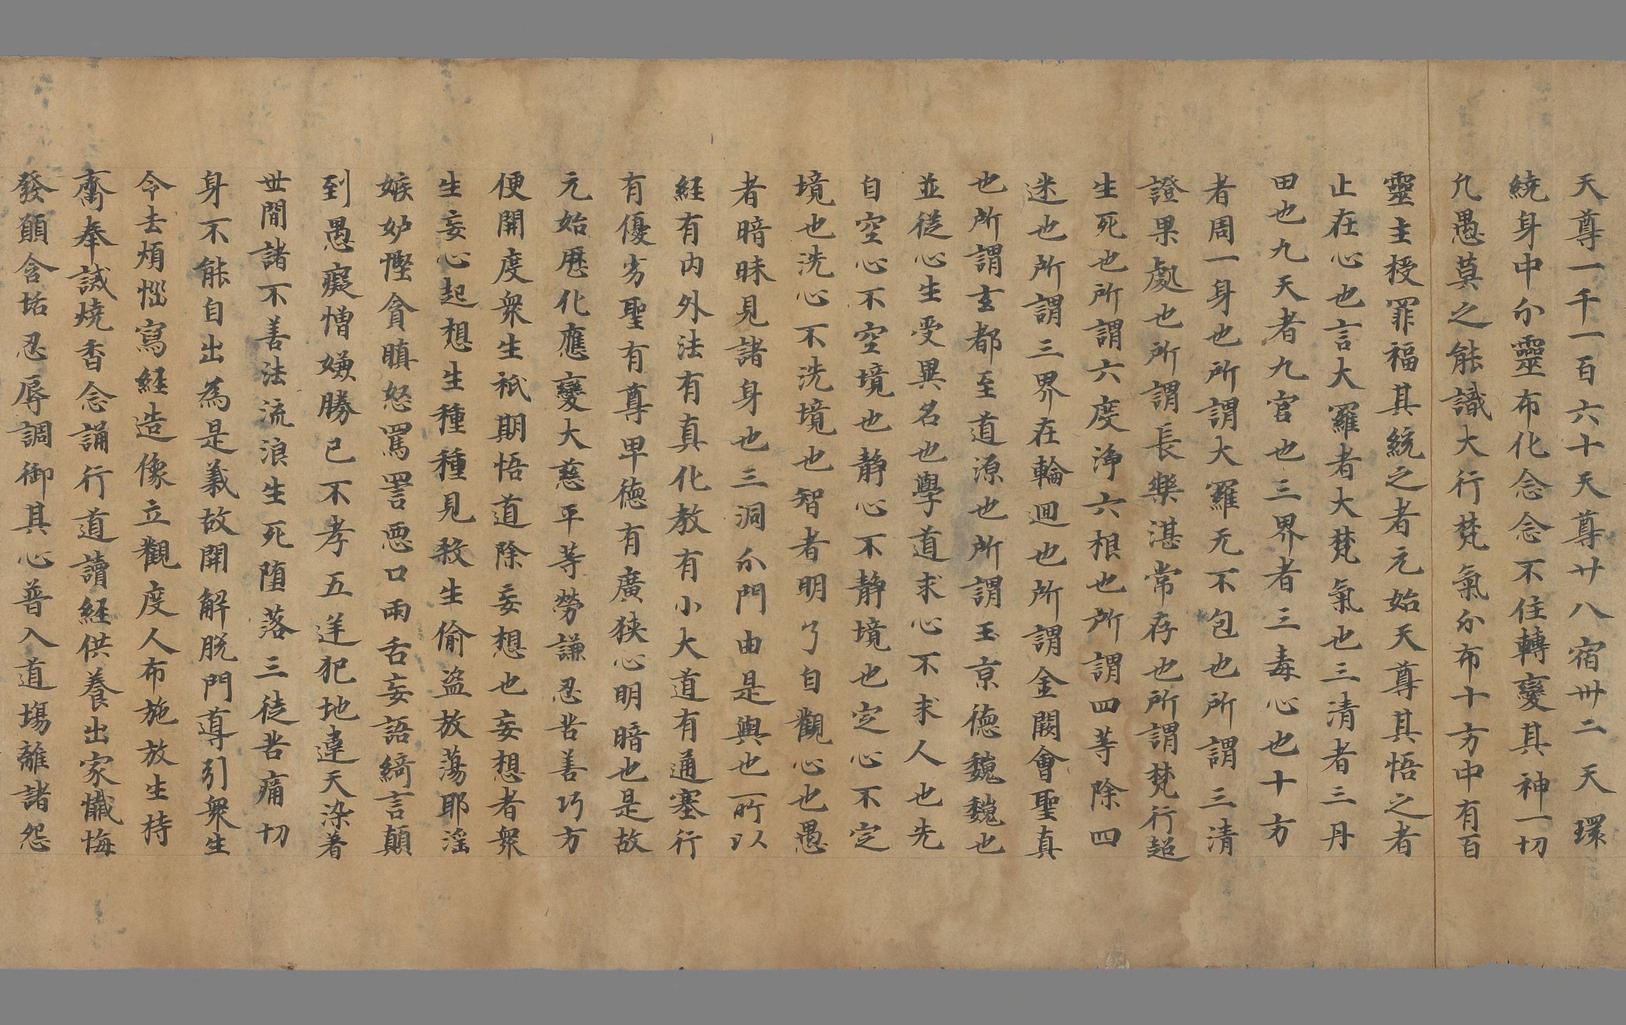 天尊一千一百六十天尊廿八宿卅二天環
繞身中尒靈布化念念不住轉變其神一切
凡愚莫之能識大行梵氣尒布十方中有百
靈主授罪福其統之者元始天尊其悟之者
止在心也言大羅者大梵氣也三清者三丹
田也九天者九宮也三界者三毒心也十方
者周一身也所謂大羅无不包也所謂三清
證果處也所謂長樂湛常存也所謂梵行超
生死也所謂六度淨六根也所謂四等除四
迷也所謂三界在輪迴也所謂金闕會聖真
也所謂玄都至道源也所謂玉京德巍巍也
並從心生受異名也學道求心不求人也先
自空心不空境也静心不静境也定心不定
境也洗心不洗境也智者明了自觀心也愚
者暗昧見諸身也三洞尒門由是興也所以
經有内外法有真化教有小大道有通塞行
有優劣聖有尊卑德有廣狹心明暗也是故
元始歷化應變大慈平等勞謙忍苦善巧方
便開度衆生祇期悟道除妄想也妄想者衆
生妄心起想生種種見殺生偷盗放蕩耶滛
嫉妒慳貪瞋怒罵詈惡口兩舌妄語綺言顛
到愚癡憎嫌勝己不孝五逆犯地違天染着
世間諸不善法流浪生死堕落三徒苦痛切
身不能自出為是義故開解脱門導引衆生
令去煩惱寫經造像立觀度人布施放生持
齋奉誡燒香念誦行道讀經供養出家懺悔
發願含垢忍辱調御其心普入道場離諸怨